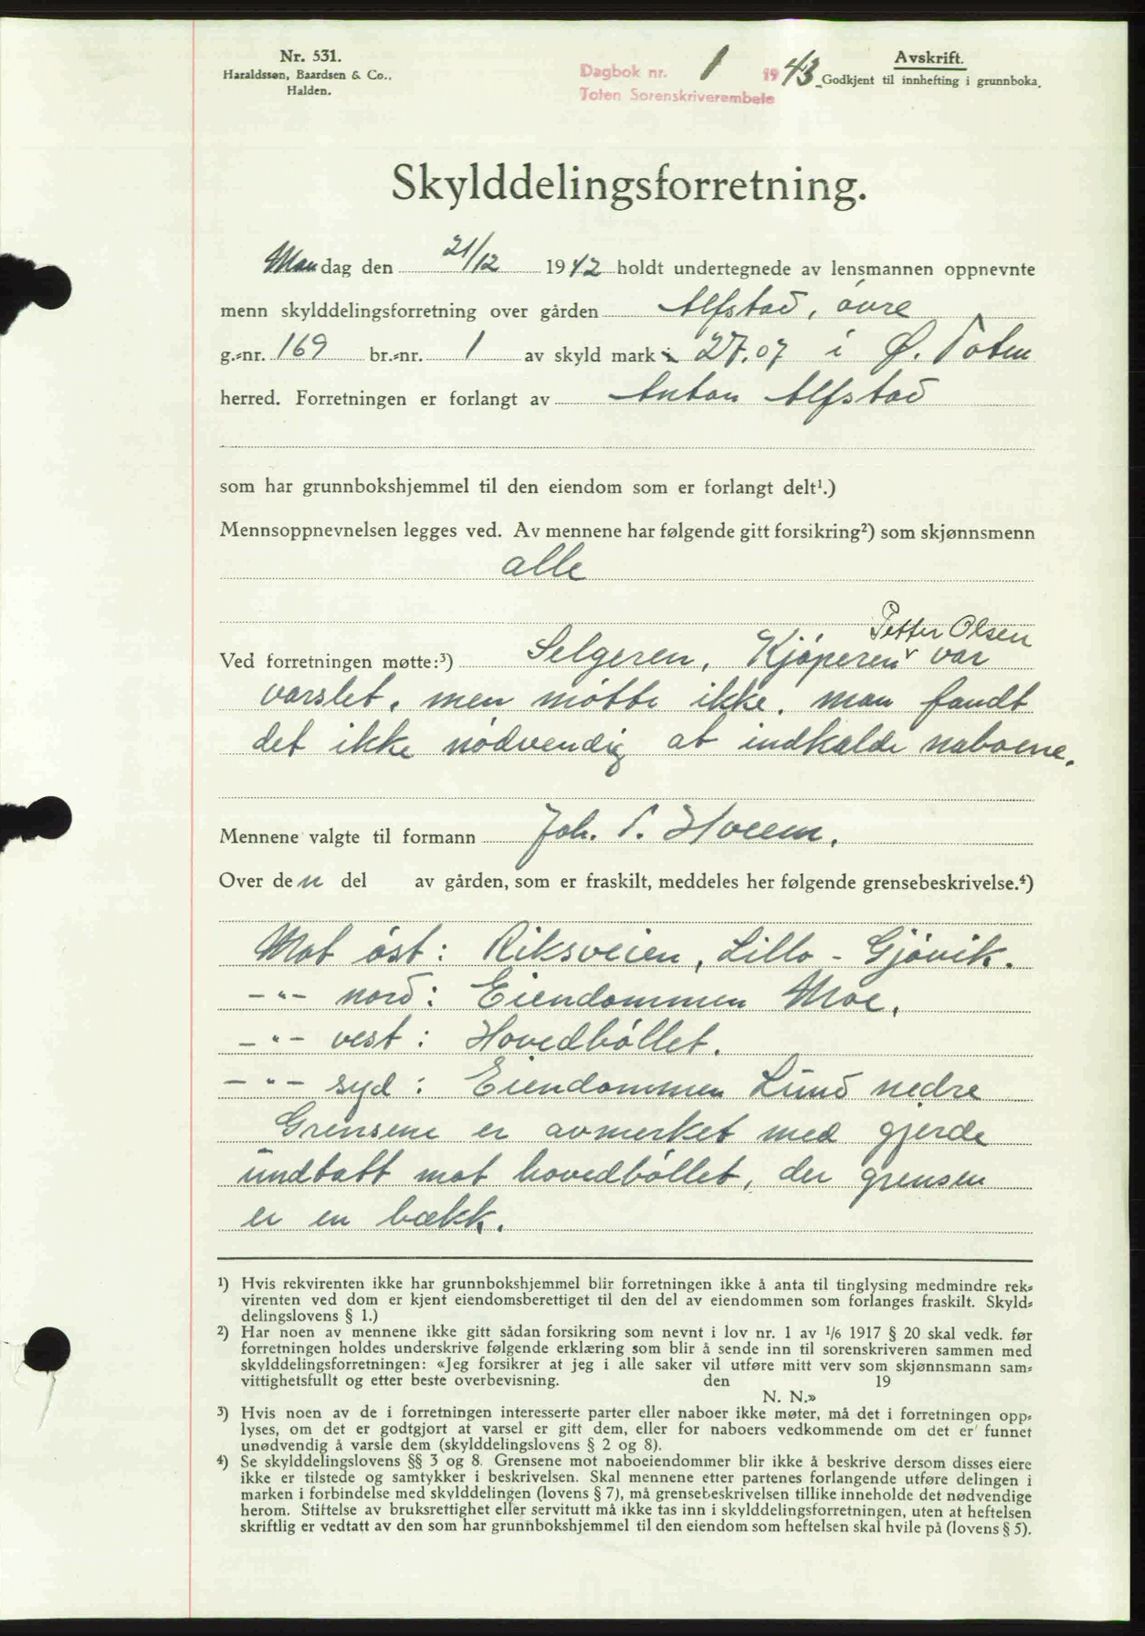 Nr. 531.
Haraldssøn, Baardsen & Co.,
Halden.
Dagbok nr. 1 1943
Toten Sorenskriverembete
Avskrift.
Godkjent til innhefting i grunnboka.
Skylddelingsforretning.
Mandag den 21/12 1942 holdt undertegnede av lensmannen oppnevnte
menn skylddelingsforretning over gården Alfstad, øvre
g.-nr. 169 br.-nr. 1 av skyld mark 27.07 i Ø. Toten
herred. Forretningen er forlangt av Anton Alfstad
som har grunnbokshjemmel til den eiendom som er forlangt delt¹.)
Mennsoppnevnelsen legges ved. Av mennene har følgende gitt forsikring²) som skjønnsmenn
alle
Petter Olsen
Ved forretningen møtte:³) Selgeren, Kjøperen var
varslet, men møtte ikke. man fandt
det ikke nødvendig at indkalde naboene.
Mennene valgte til formann Joh. P. Hveem.
Over den del av gården, som er fraskilt, meddeles her følgende grensebeskrivelse.⁴)
Mot øst: Riksveien, Lillo - Gjøvik.
-"- nord: Eiendommen Moe.
-"- vest: Hovedbøllet.
-"- syd: Eiendommen Lund nedre
Grensene er avmerket med gjerde
undtatt mot hovedbøllet, der grensen
er en bækk.
¹) Hvis rekvirenten ikke har grunnbokshjemmel blir forretningen ikke å anta til tinglysing medmindre rek-
virenten ved dom er kjent eiendomsberettiget til den del av eiendommen som forlanges fraskilt. Skyld-
delingslovens § 1.)
²) Har noen av mennene ikke gitt sådan forsikring som nevnt i lov nr. 1 av 1/6 1917 § 20 skal vedk. før
forretningen holdes underskrive følgende erklæring som blir å sende inn til sorenskriveren sammen med
skylddelingsforretningen: «Jeg forsikrer at jeg i alle saker vil utføre mitt verv som skjønnsmann sam-
vittighetsfullt og etter beste overbevisning. den 19
N. N.»
³) Hvis noen av de i forretningen interesserte parter eller naboer ikke møter, må det i forretningen opp-
lyses, om det er godtgjort at varsel er gitt dem, eller for naboers vedkommende om det er funnet
unødvendig å varsle dem (skylddelingslovens § 2 og 8).
⁴) Se skylddelingslovens §§ 3 og 8. Grensene mot naboeiendommer blir ikke å beskrive dersom disses eiere
ikke er tilstede og samtykker i beskrivelsen. Skal mennene etter partenes forlangende utføre delingen i
marken i forbindelse med skylddelingen (lovens § 7), må grensebeskrivelsen tillike inneholde det nødvendige
herom. Stiftelse av bruksrettighet eller servitutt må ikke tas inn i skylddelingsforretningen, uten at heftelsen
skriftlig er vedtatt av den som har grunnbokshjemmel til den eiendom som heftelsen skal hvile på (lovens § 5).